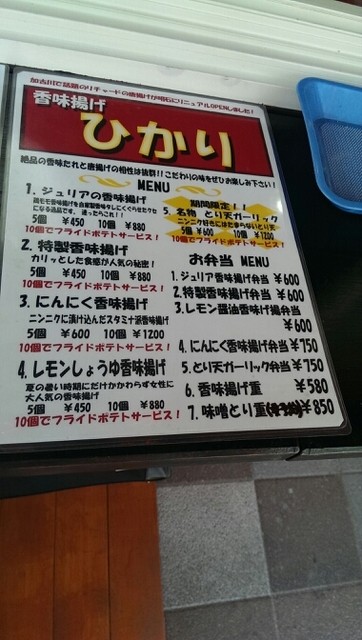 加古川で話題のリチャードの唐揚げが明石にリニュアルOPENしました!
香味揚げ
ひかり
絶品の香味だれと唐揚げの相性は抜群!!こだわりの味をぜひお楽しみ下さい!
MENU
1. ジュリアの香味揚げ
鶏モモ香味揚げを自家製香味ダレにくぐらせたクセ
になる逸品です。迷ったらこれ!!
5個 ¥450 10個 ¥880
10個でフライドポテトサービス!
2. 特製香味揚げ
カリッとした食感が人気の秘密!
5個 ¥450 10個 ¥880
10個でフライドポテトサービス!
3. にんにく香味揚げ
ニンニクに漬け込んだスタミナ派香味揚げ
5個 ¥600 10個 ¥1200
10個でフライドポテトサービス!
4. レモンしょうゆ香味揚げ
夏の暑い時期にだけかかわらず女性に
大人気の香味揚げ
5個 ¥450 10個 ¥880
10個でフライドポテトサービス!
期間限定!!
5. 名物 とり天ガーリック
ニンニク好きにはたまらないとり天
5個 ¥600 10個 ¥1200
10個でフライドポテトサービス!
お弁当 MENU
1. ジュリア香味揚げ弁当 ¥600
2. 特製香味揚げ弁当 ¥600
3. レモン醤油香味揚げ弁当
¥600
4. にんにく香味揚げ弁当 ¥750
5. とり天ガーリック弁当 ¥750
6. 香味揚げ重 ¥580
7. 味噌とり重 ¥850